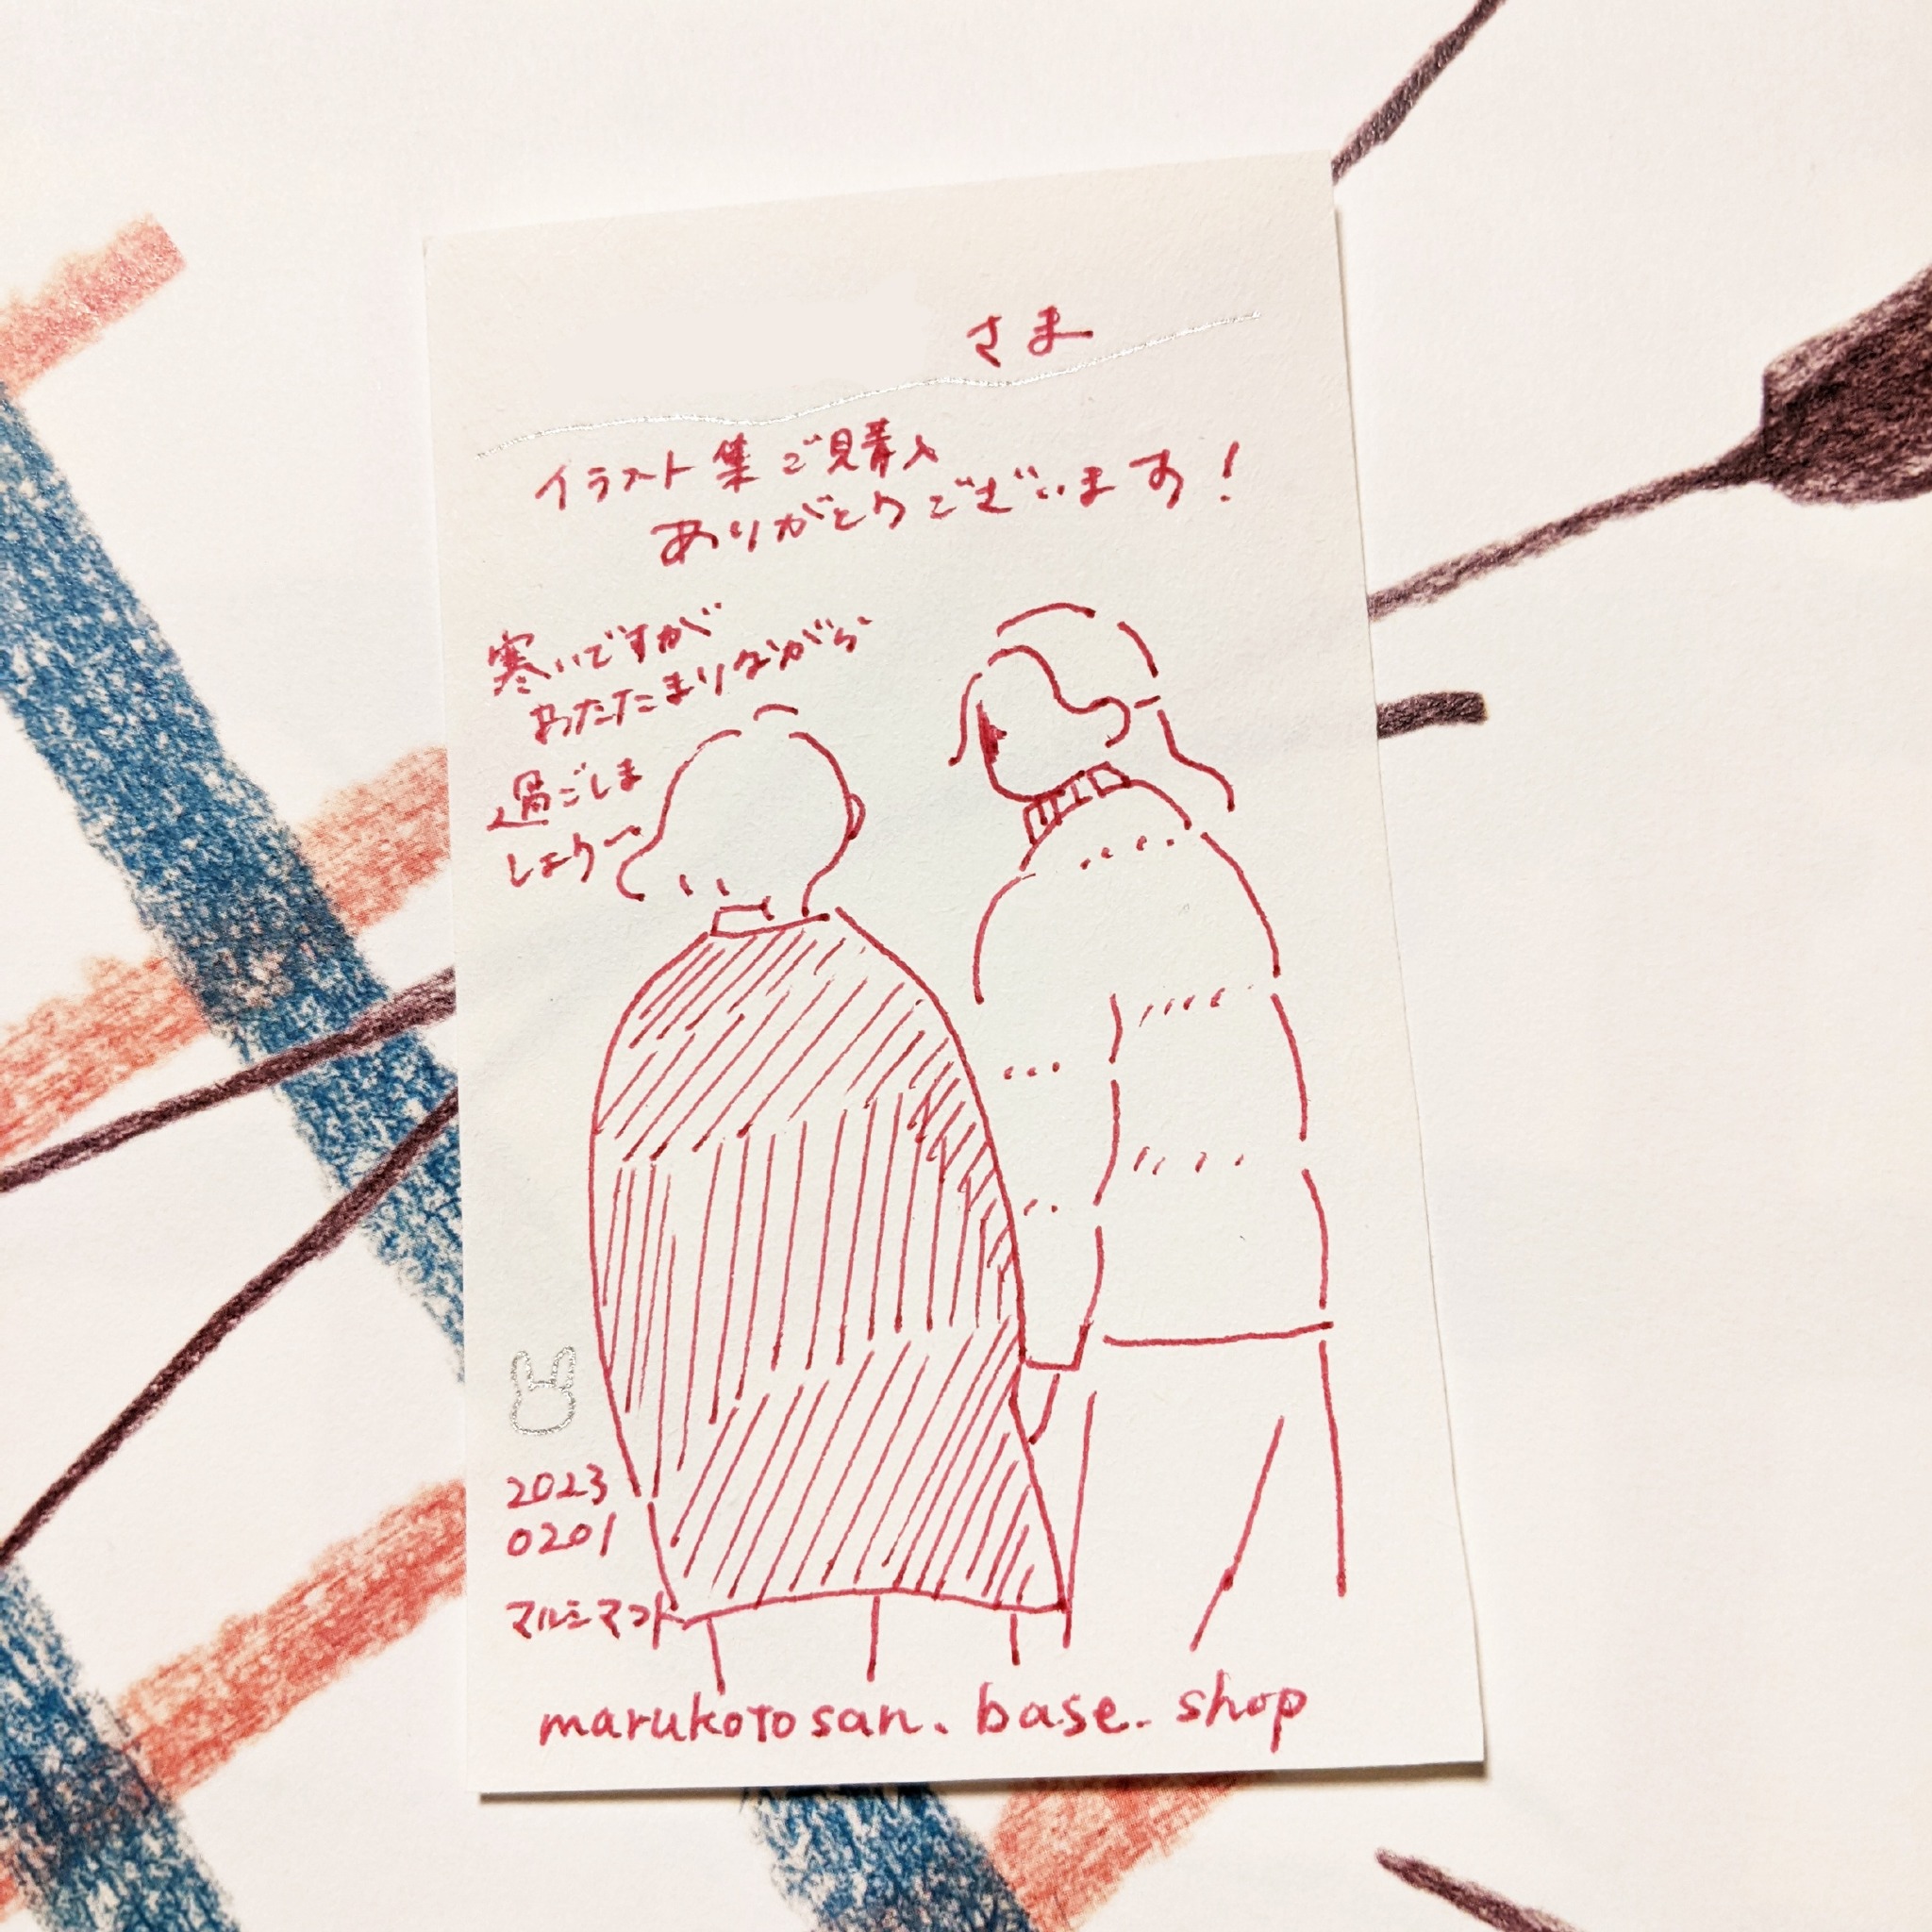 さま
イラスト集ご購入
ありがとうございます！
寒いですが
あたたまりながら
過ごしま
しょうー
2023
0201
マルコマコト
marukotosan.base.shop